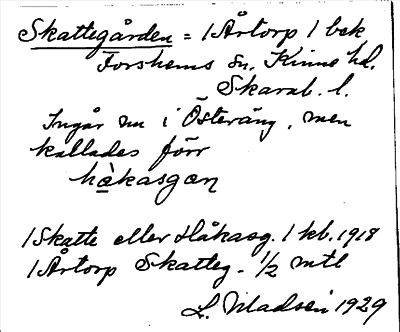 Skattegården = 1 Årtorp 1 bek
Forshems sn. Kinne hd.
Skarab. l.
Ingår nu i Österäng, men
kallades förr
hàkasgæn
1 Skatte eller Håkasg. 1 kb. 1918
1 Årtorp Skatteg. ½ mtl
L. Madsén 1929